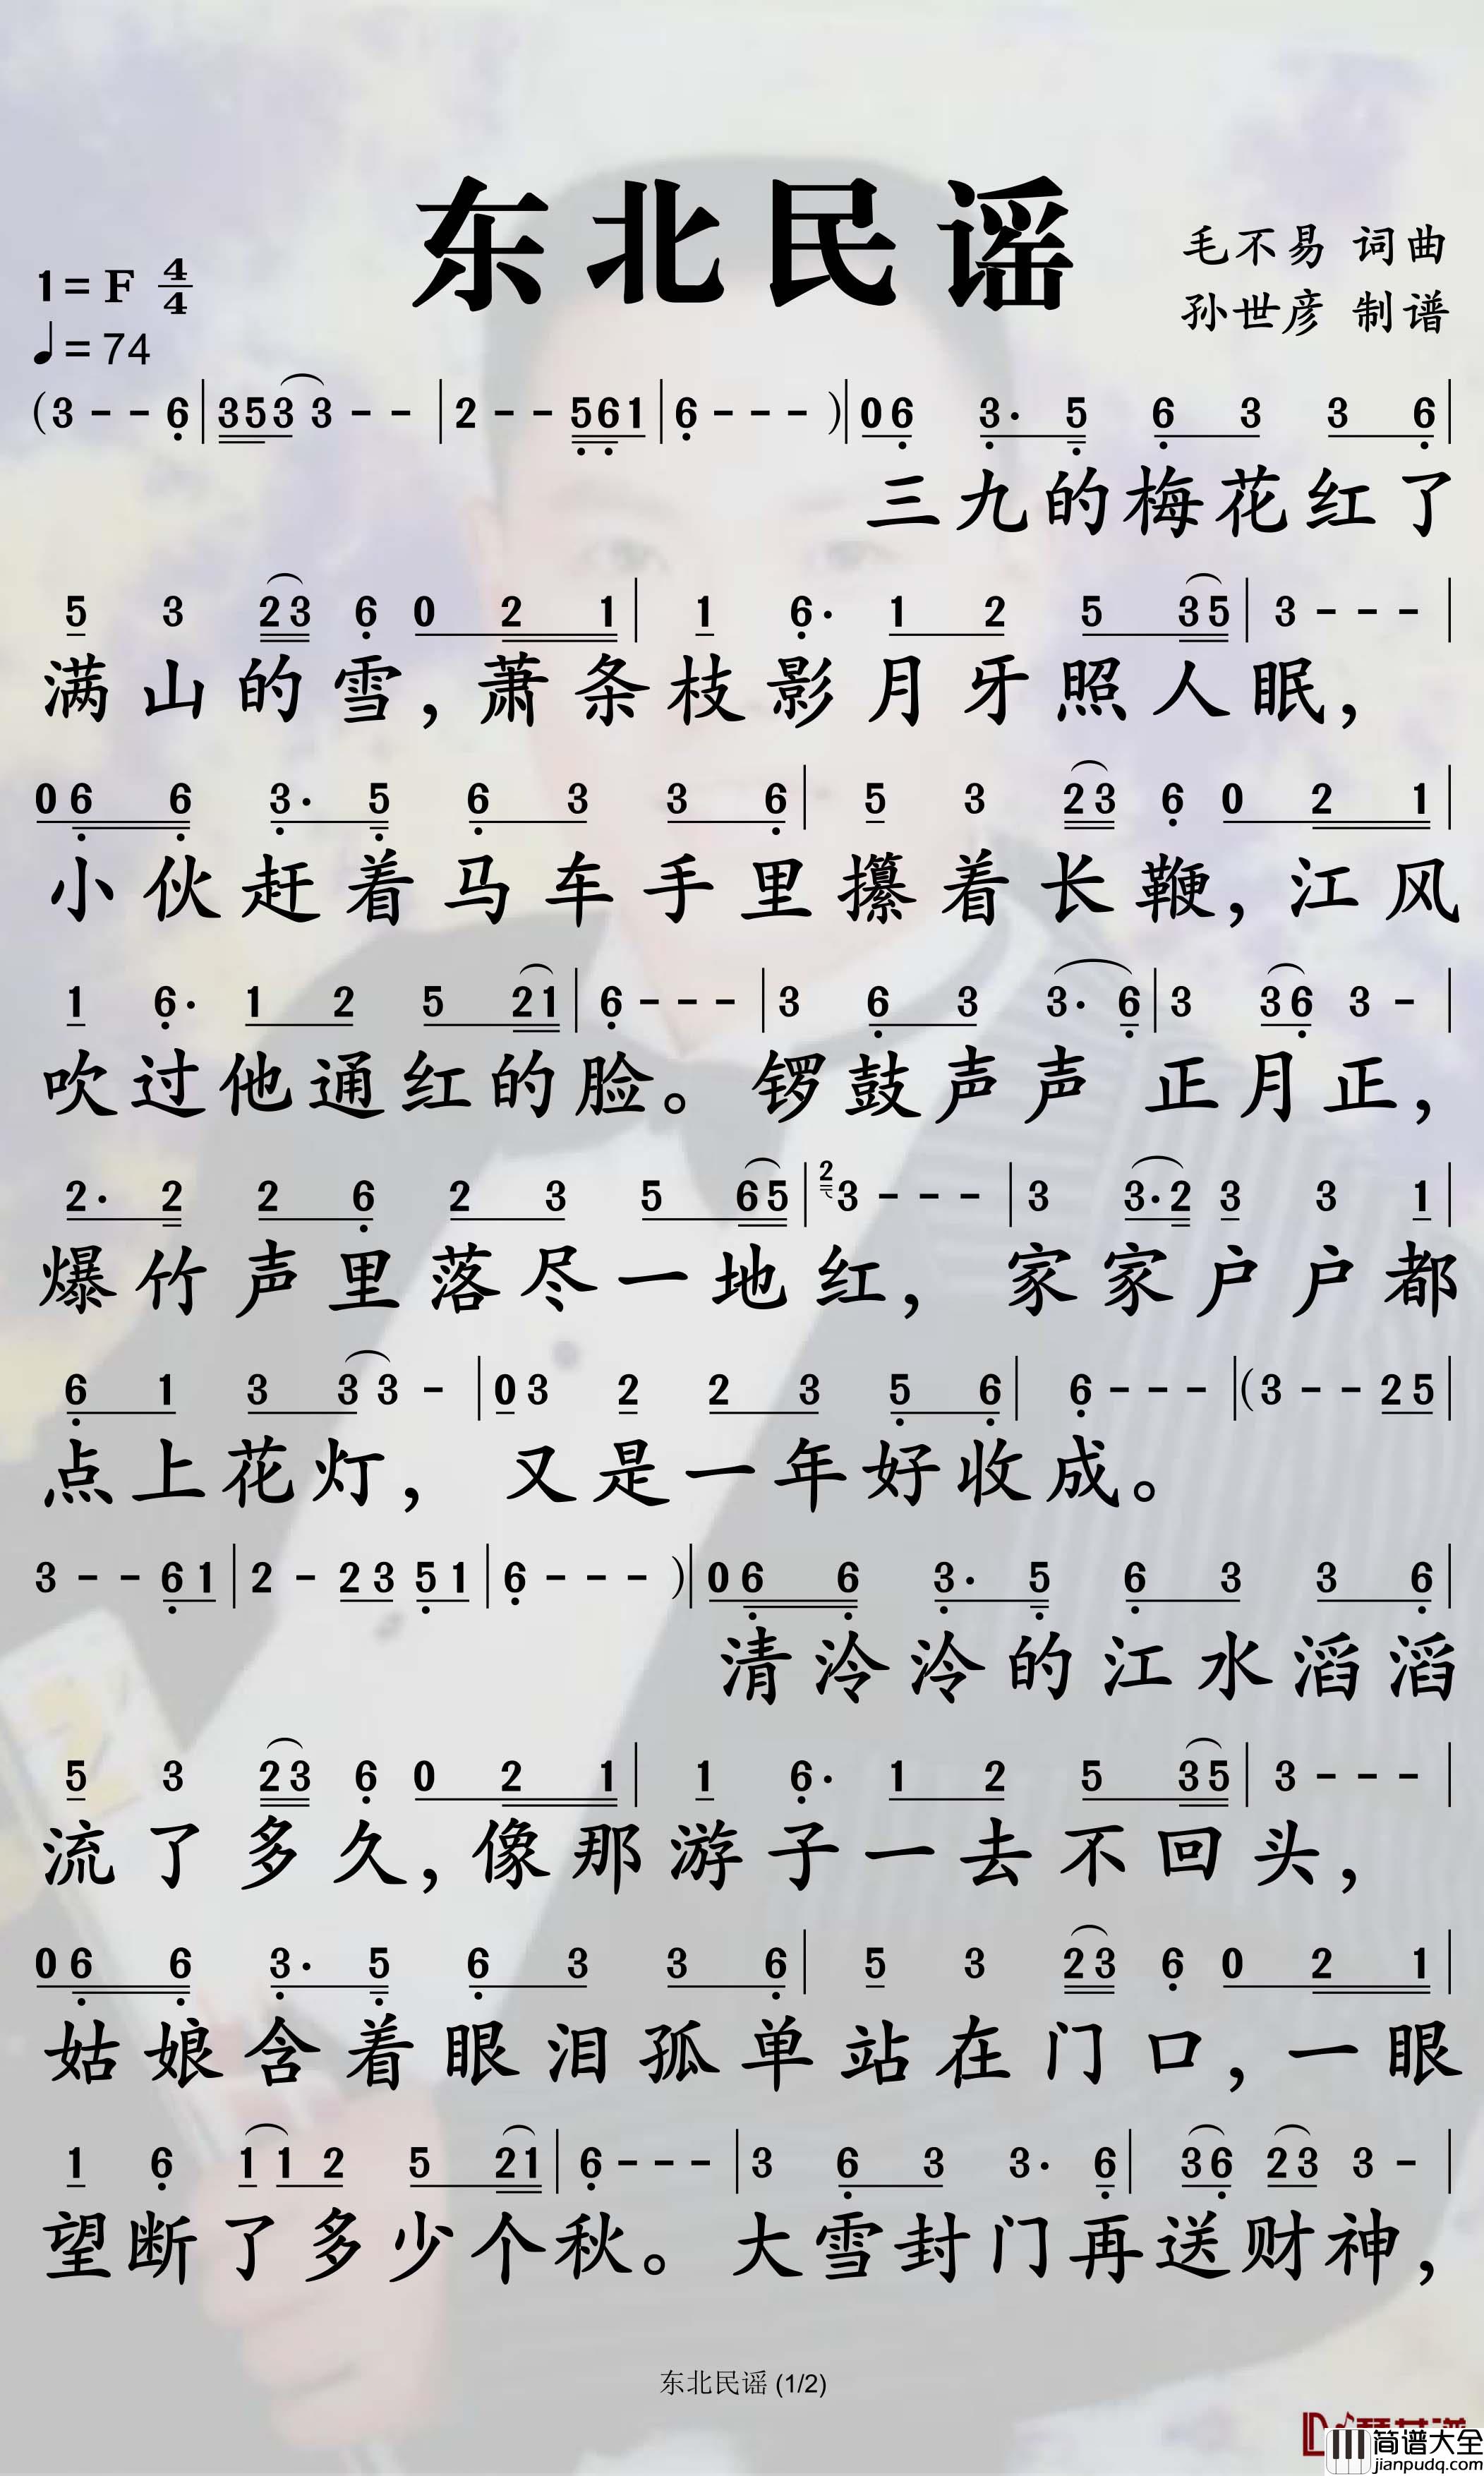 东北民谣
毛不易 词曲
孙世彦 制谱
1=F 4/4
♩=74
(3 - - 6|353 3 - -|2 - - 561|6 - - - )|06 3· 5 6 3 3 6|
三九的梅花红了
5 3 23 6 0 2 1|1 6· 1 2 5 35|3 - - -|
满山的雪,萧条枝影月牙照人眠,
06 6 3· 5 6 3 3 6|5 3 23 6 0 2 1|
小伙赶着马车手里攥着长鞭,江风
1 6· 1 2 5 21|6 - - -|3 6 3 3· 6|3 36 3 -|
吹过他通红的脸。锣鼓声声正月正,
2· 2 2 6 2 3 5 65|2 3 - - -|3 3·2 3 3 1|
爆竹声里落尽一地红,家家户户都
6 1 3 3 3 -|03 2 2 3 5 6|6 - - -|(3 - - 25|
点上花灯,又是一年好收成。
3 - - 61|2 - 23 51|6 - - - )|06 6 3· 5 6 3 3 6|
清泠泠的江水滔滔
5 3 23 6 0 2 1|1 6· 1 2 5 35|3 - - -|
流了多久,像那游子一去不回头,
06 6 3· 5 6 3 3 6|5 3 23 6 0 2 1|
姑娘含着眼泪孤单站在门口,一眼
1 6 1 1 2 5 21|6 - - -|3 6 3 3· 6|36 23 3 -|
望断了多少个秋。大雪封门再送财神,
东北民谣 (1/2)
简谱大全
jianpudq.com